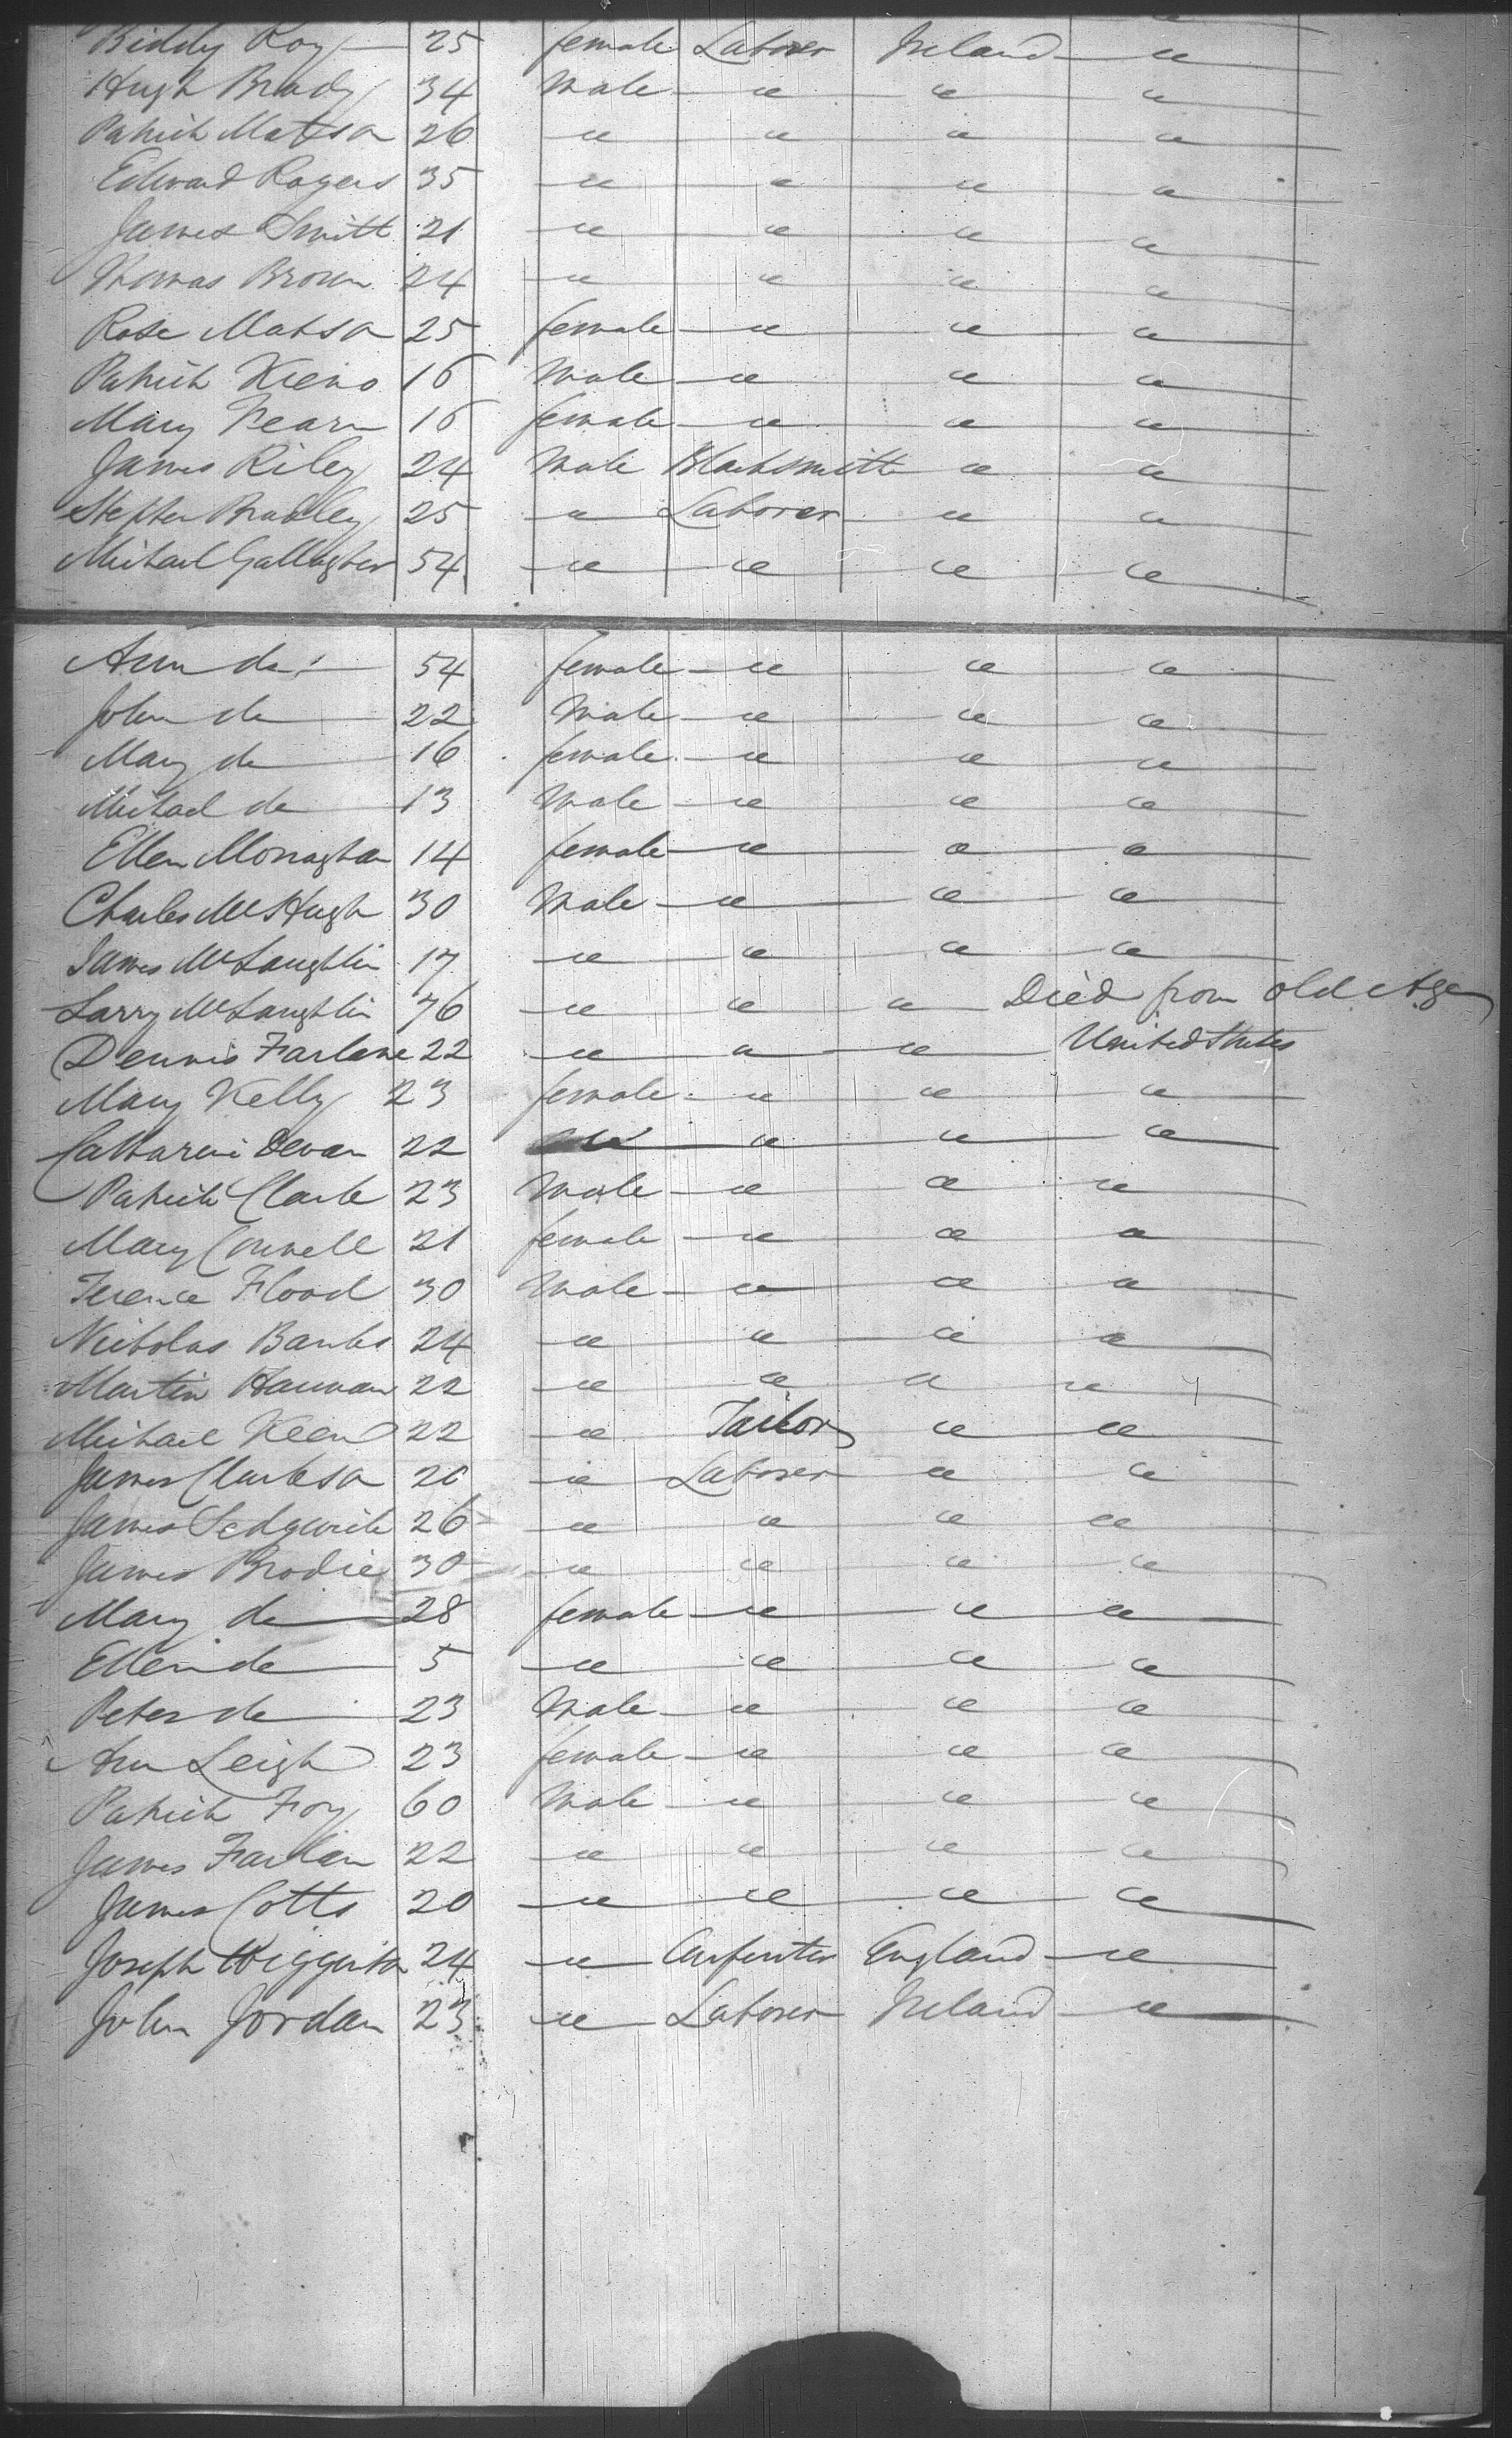 Biddy Roy 25 female Laborer Ireland "
Hugh Brady 34 Male " " "
Patrick Matson 26 " " " "
Edward Rogers 35 " " " "
James Smith 21 " " " "
Thomas Brown 24 " " " "
Rose Matson 25 female " " "
Patrick 16 Male " " "
Mary 16 female " " "
James Riley 24 Male Blacksmith " "
Stephen Bradley 25 " Laborer " "
Michael Gallagher 54 " " " "
Ann do 54 female " " "
John do 22 Male " " "
Mary do 16 female " " "
Michael do 13 Male " " "
Ellen Monaghan 14 female " " "
Charles McHugh 30 Male " " "
James McLaughlin 17 " " " "
Larry McLaughlin 76 " " " Died from old Age
Dennis Farlane 22 " " " United States
Mary Kelly 23 female " " "
Catharine Devan 22 " " " "
Patrick Clark 23 Male " " "
Mary Connell 21 female " " "
Terence Flood 30 Male " " "
Nicholas Banks 24 " " " "
Martin Hannan 22 " " " "
Michael Keen 22 " Tailor " "
James Clarkson 20 " Laborer " "
James Sedgwick 26 " " " "
James Brodie 30 " " " "
Mary do 28 female " " "
Ellen do 5 " " " "
Peter do 23 Male " " "
Ann Leigh 23 female " " "
Patrick Foy 60 Male " " "
James Farlan 22 " " " "
James Cotts 20 " " " "
Joseph Wigginton 24 " Carpenter England "
John Jordan 23 " Laborer Ireland "